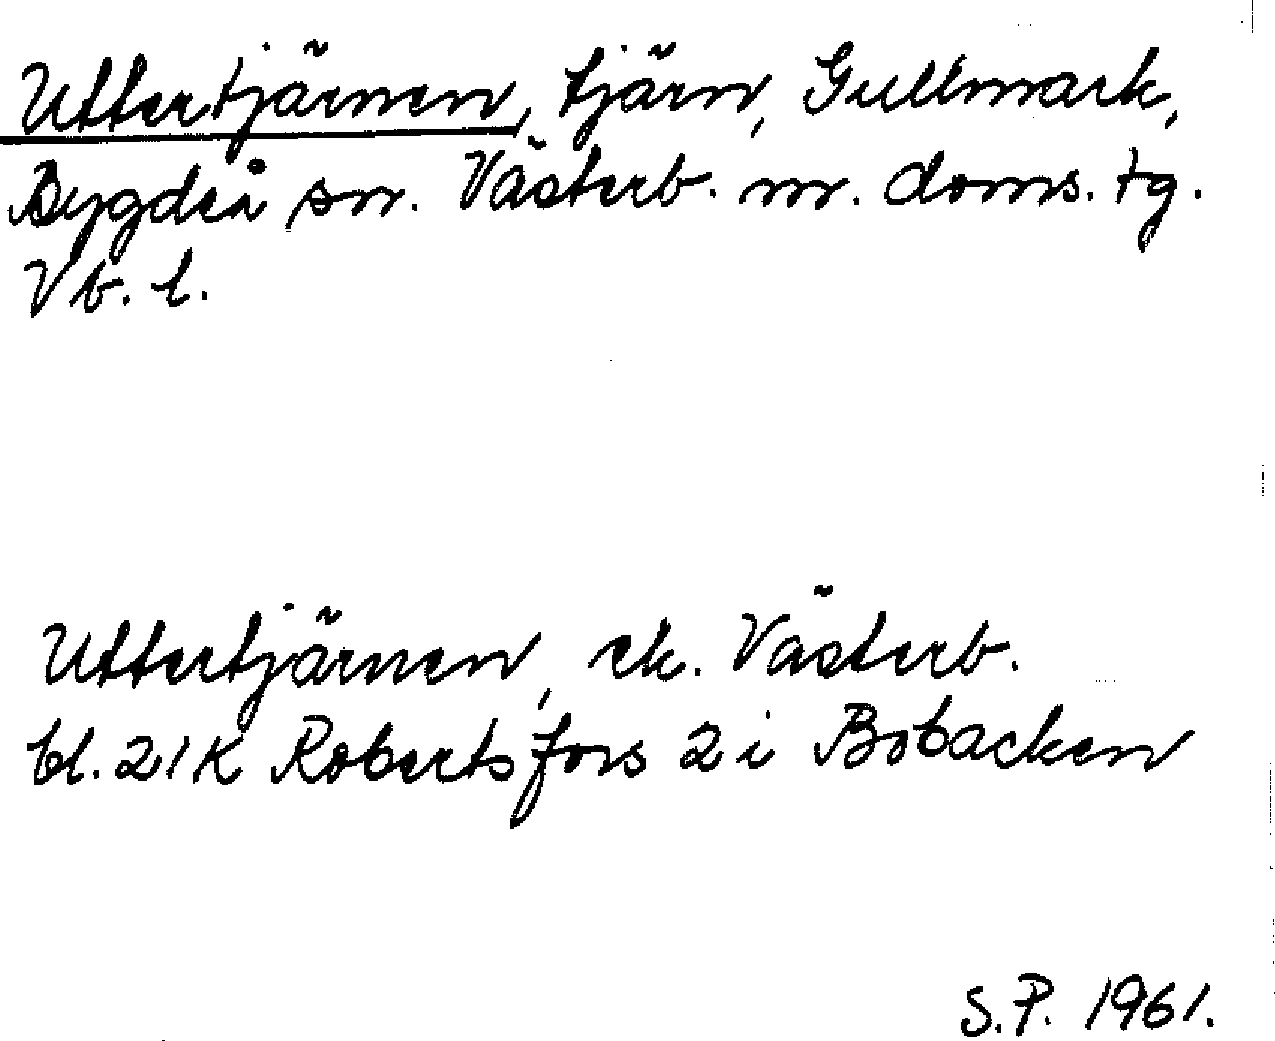 Uttertjärnen, tjärn, Gullmark,
Bygdeå sn. Västerb. m. doms. tg.
Vb. l.
Uttertjärnen, ek. Västerb.
bl. 21K Robertsfors 2 i Bobacken
S.P. 1961.